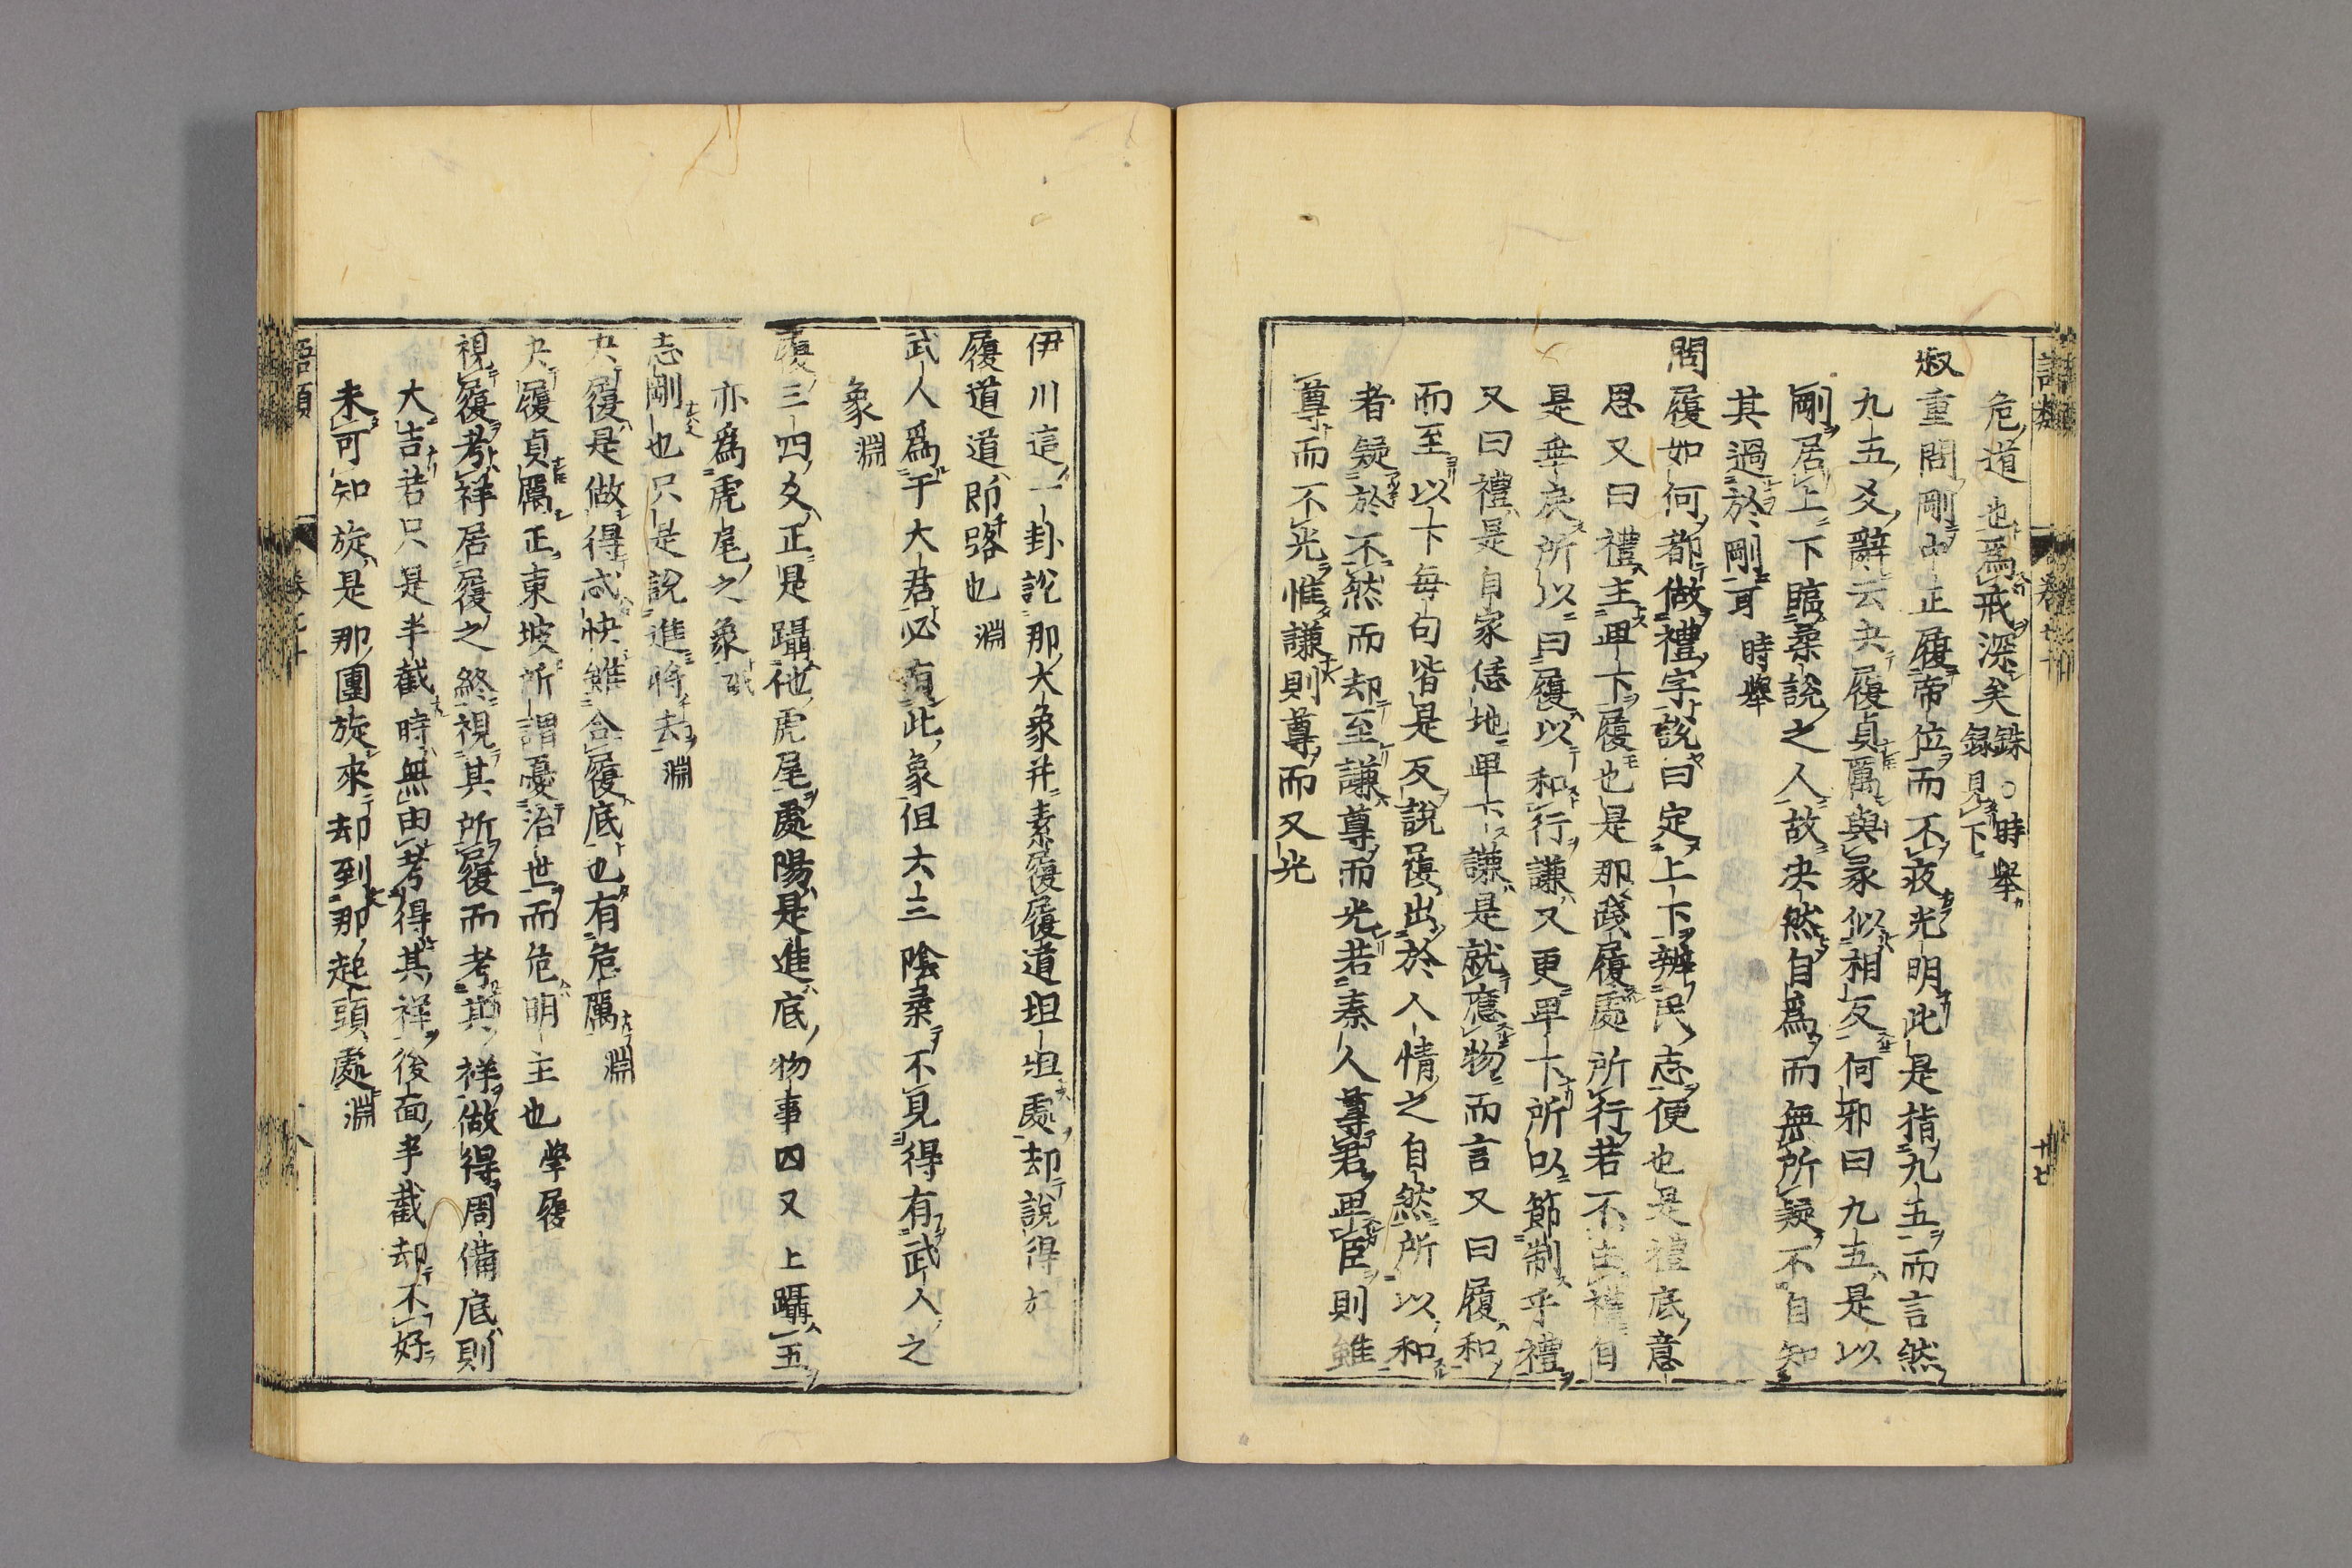 危道也爲戒深矣銖○時擧
録見下
叔重問剛中正履帝位而不疚光明此是指九五而言然
九五爻辭云夬履貞厲與彖似相反何邪曰九五是以
剛居上下臨柔說之人故决然自爲而無所疑不自知
其過於剛耳時擧
問履如何都做禮字說曰定上下辨民志便也是禮底意
思又曰禮主卑下履也是那踐履處所行若不由禮自
是乖戾所以曰履以和行謙又更卑下所以節制乎禮
又曰禮是自家恁地卑下謙是就應物而言又曰履和
而至以下每句皆是反說履出於人情之自然所以和
者疑於不然而却至謙尊而光若秦人尊君卑臣則雖
尊而不光惟謙則尊而又光
伊川這一卦說那大象幷素履履道坦坦處却說得好
履道道即路也淵
武人爲于大君必有此象但六三陰柔不見得有武人之
象淵
履三四爻正是躡他虎尾處陽是進底物事四又上躡五
亦爲虎尾之象砥
志剛也只是說進將去淵
夬履是做得忒快雖合履底也有危厲淵
夬履貞厲正東坡所謂憂治世而危明主也學履
視履考祥居履之終視其所履而考其祥做得周備底則
大吉若只是半截時無由考得其祥後面半截却不好
未可知旋是那團旋來却到那起頭處淵